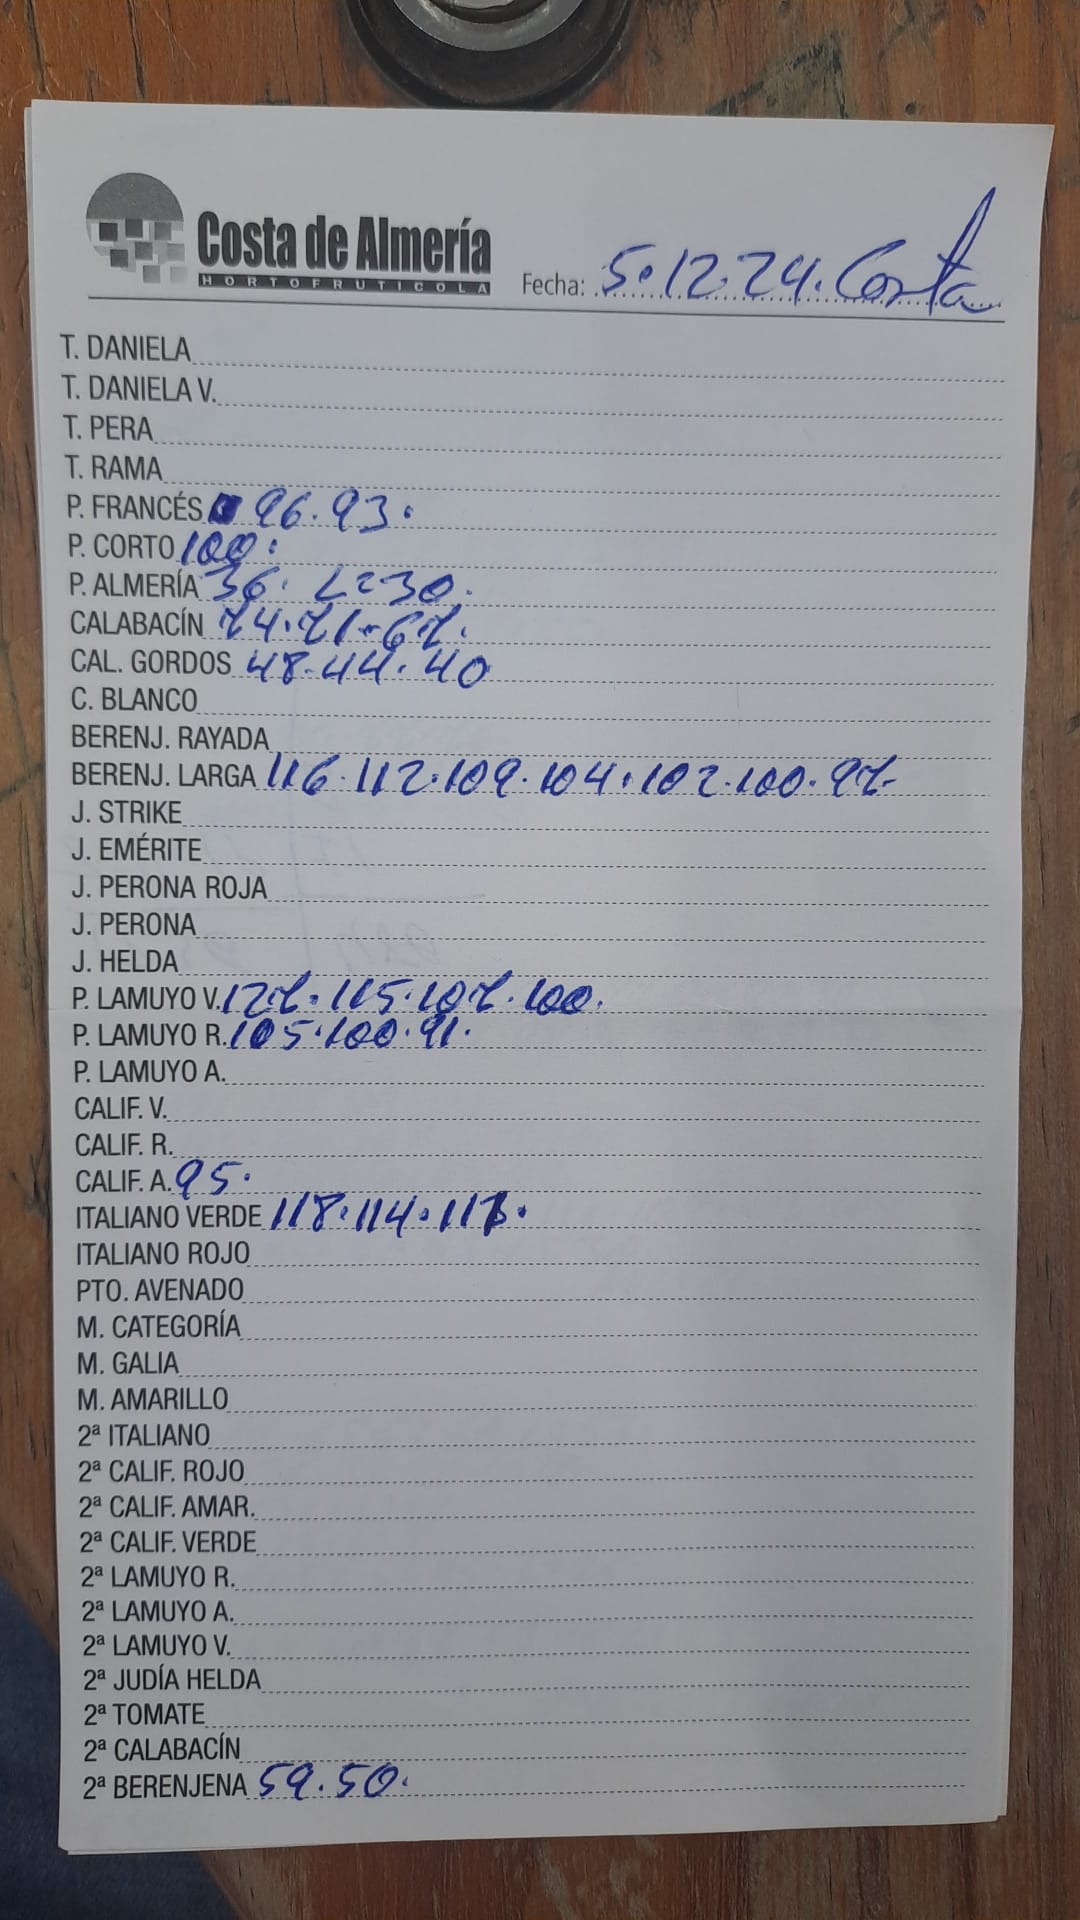 Costa de Almería
HORTOFRUTICOLA
Fecha: 5.12.24. Costa
T. DANIELA
T. DANIELA V.
T. PERA
T. RAMA
P. FRANCÉS 96.93.
P. CORTO 100.
P. ALMERÍA 36. L=30.
CALABACÍN 74.71.67.
CAL. GORDOS 48.44.40
C. BLANCO
BERENJ. RAYADA
BERENJ. LARGA 116.112.109.104.102.100.97-
J. STRIKE
J. EMÉRITE
J. PERONA ROJA
J. PERONA
J. HELDA
P. LAMUYO V. 127.115.107.100.
P. LAMUYO R. 105.100.91.
P. LAMUYO A.
CALIF. V.
CALIF. R.
CALIF. A. 95.
ITALIANO VERDE 118.114.
ITALIANO ROJO
PTO. AVENADO
M. CATEGORÍA
M. GALIA
M. AMARILLO
2ª ITALIANO
2ª CALIF. ROJO
2ª CALIF. AMAR.
2ª CALIF. VERDE
2ª LAMUYO R.
2ª LAMUYO A.
2ª LAMUYO V.
2ª JUDÍA HELDA
2ª TOMATE
2ª CALABACÍN
2ª BERENJENA 59.50.